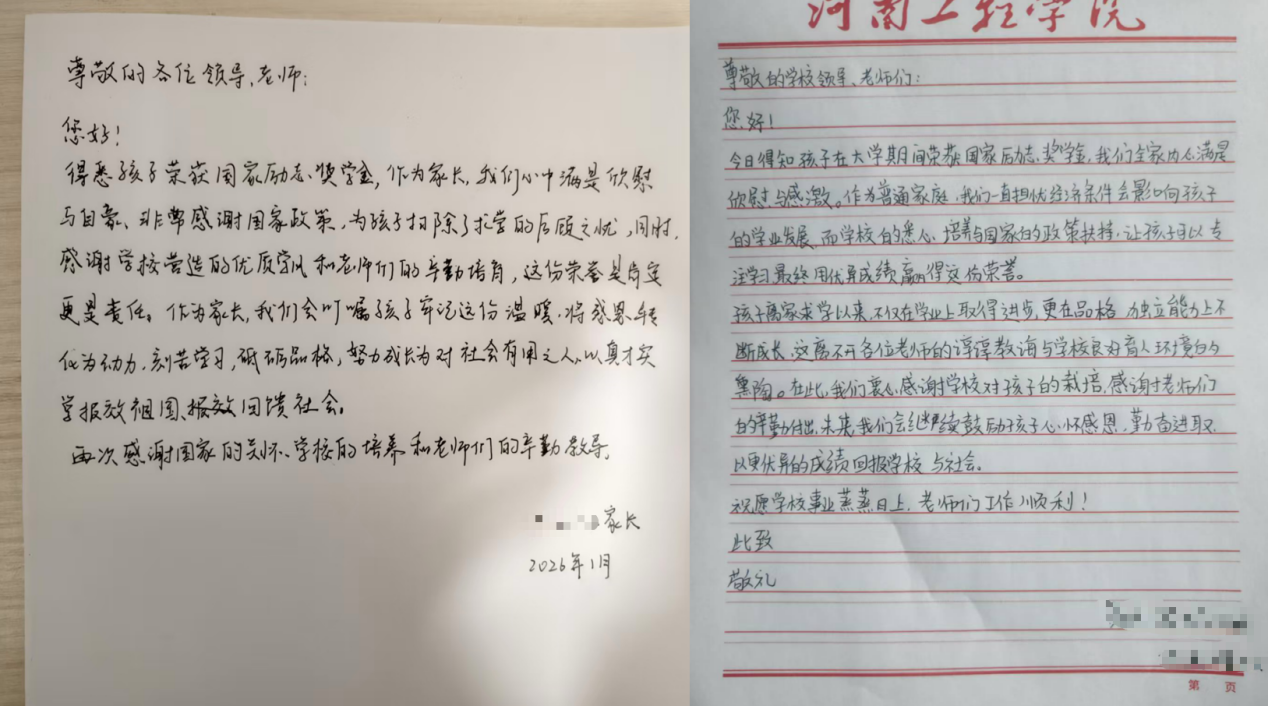 尊敬的各位领导、老师:
您好!
得悉孩子荣获国家励志奖学金,作为家长,我们心中满是欣慰
与自豪、非常感谢国家政策,为孩子扫除了求学的后顾之忧,同时,
感谢学校营造的优质学风和老师们的辛勤培育,这份荣誉是肯定
更是责任。作为家长,我们会叮嘱孩子牢记这份温暖,将感恩转
化为动力,刻苦学习,砥砺品格,努力成长为对社会有用之人,以真才实
学报效祖国、报效回馈社会。
再次感谢国家的关怀、学校的培养和老师们的辛勤教导。
家长
2026年1月
河南工程学院
尊敬的学校领导、老师们:
您好!
今日得知孩子在大学期间荣获国家励志奖学金,我们全家内心满是
欣慰与感激。作为普通家庭,我们一直担忧经济条件会影响孩子
的学业发展,而学校的悉心培养与国家的政策扶持,让孩子可以专
注学习最终用优异成绩赢得这份荣誉。
孩子离家求学以来,不仅在学业上取得进步,更在品格、独立能力上不
断成长,这离不开各位老师的谆谆教诲与学校良好育人环境的
熏陶。在此,我们衷心感谢学校对孩子的栽培,感谢老师们
的辛勤付出,未来我们会继续鼓励孩子心怀感恩,勤奋进取,
以更优异的成绩回报学校与社会。
祝愿学校事业蒸蒸日上,老师们工作顺利!
此致
敬礼
第 页